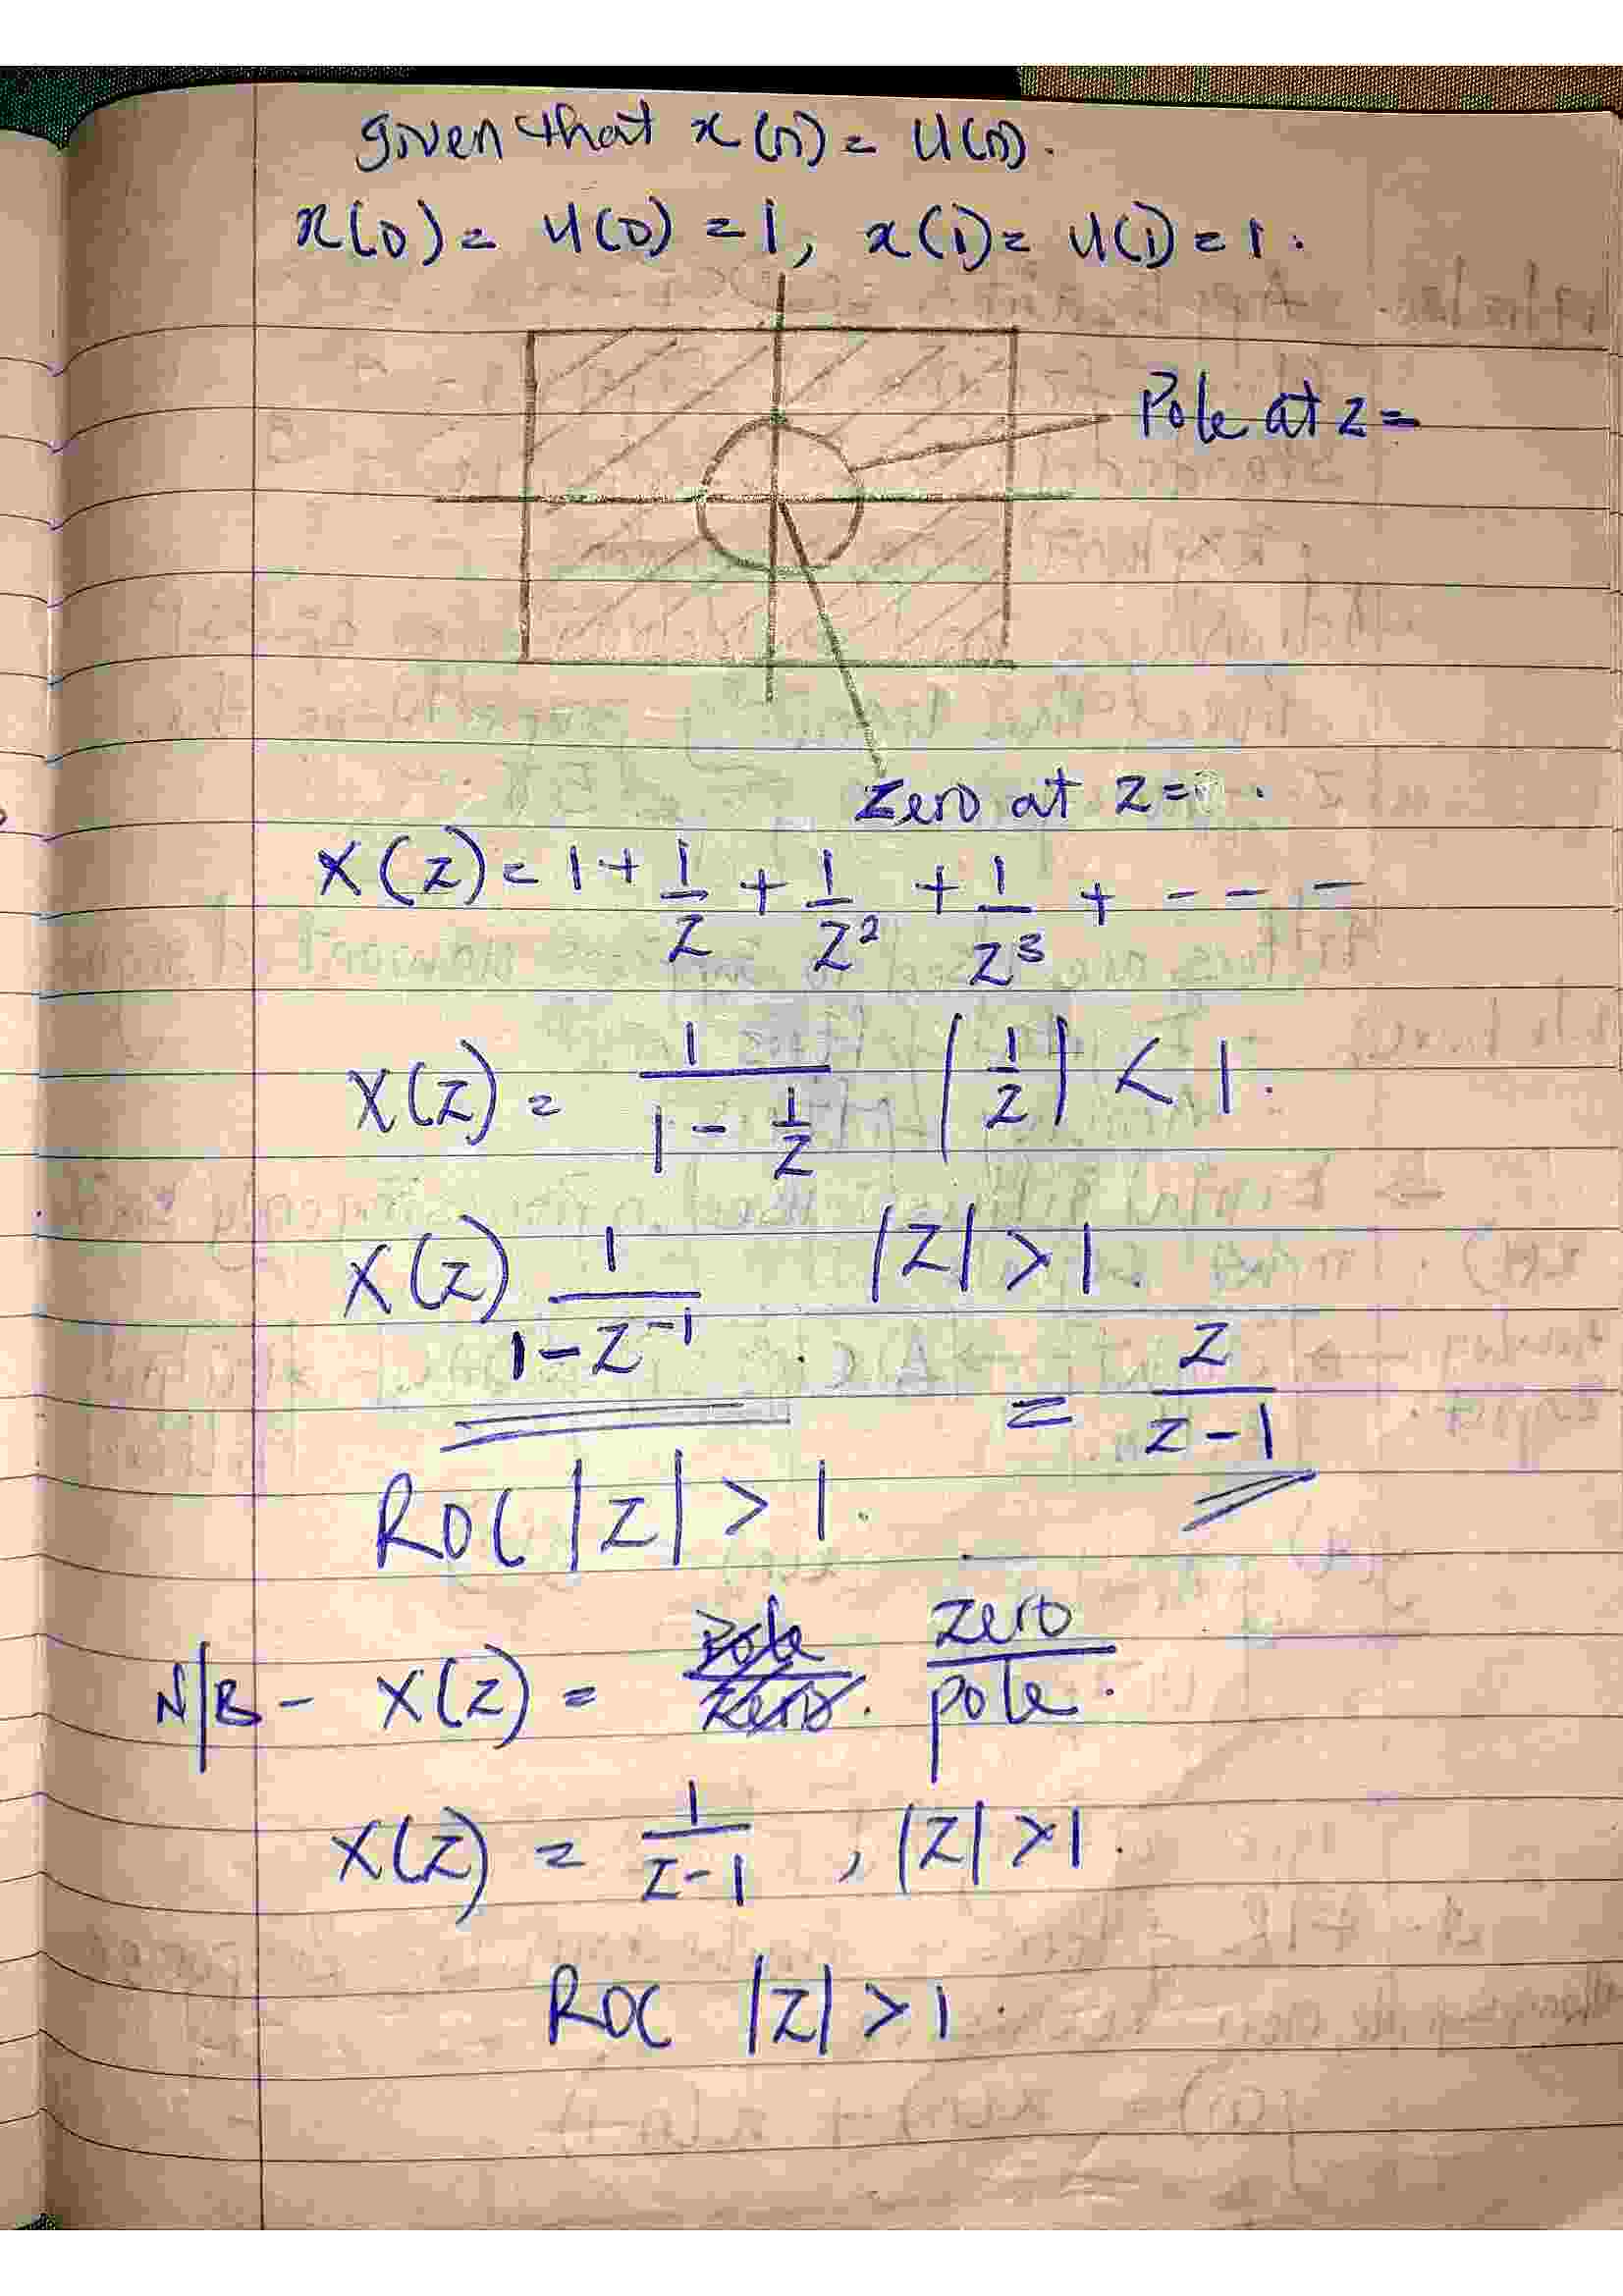 given that x(n) = U(n).
x(0) = U(0) = 1, x(1) = U(1) = 1.
Pole at z =
Zero at z = .
X(z) = 1 + 1/z + 1/z² + 1/z³ + - - -
X(z) = 1/(1 - 1/z) |1/z| < 1.
X(z) 1/(1 - z⁻¹) |z| > 1.
= z/(z - 1)
ROC |z| > 1.
N/B - X(z) = Pole/Zero. zero/pole.
X(z) = 1/(z - 1) , |z| > 1.
ROC |z| > 1.